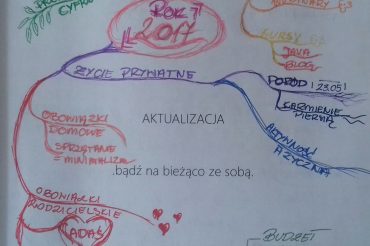 CYFRO
WEBINARY
ROK
2017
KURSY
JAVA
BLOG
ŻYCIE PRYWATNE
PORÓD 23.05!
KARMIENIE
PIERSIĄ
AKTYWNOŚĆ
FIZYCZNA
OBOWIĄZKI
DOMOWE
SPRZĄTANIE
=MINIMALIZM
AKTUALIZACJA
.bądź na bieżąco ze sobą.
OBOWIĄZKI
RODZICIELSKIE
ADAŚ
BUDŻET